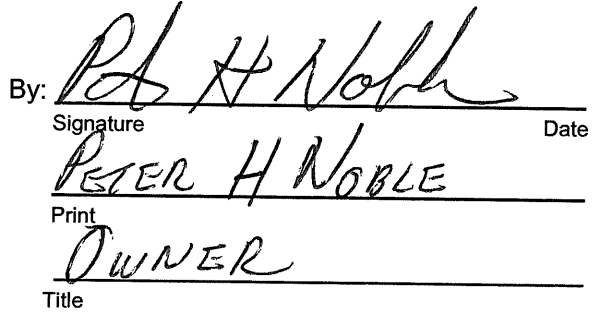 By: Peter H Noble
Signature Date
PETER H NOBLE
Print
OWNER
Title